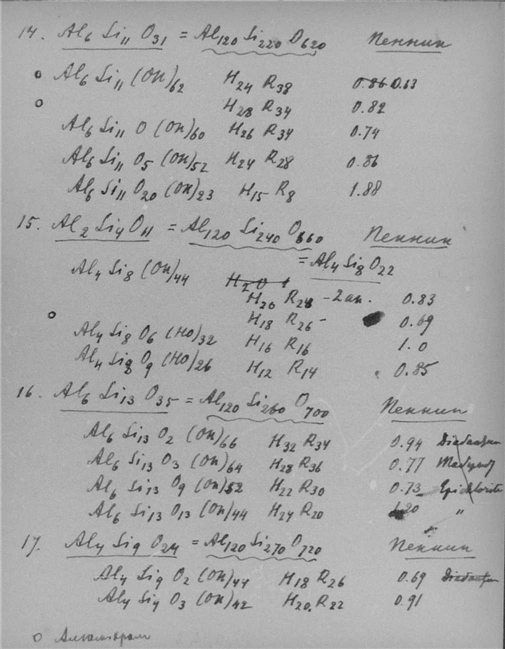 14. Al6 Si11 O31 = Al120 Si220 O620 Пеннин
o Al6 Si11 (OH)62 H24 R38 0.86 0.63
o H28 R34 0.82
Al6 Si11 O (OH)60 H26 R34 0.74
Al6 Si11 O5 (OH)52 H24 R28 0.86
Al6 Si11 O20 (OH)23 H15 R8 1.88
15. Al2 Si4 O11 = Al120 Si240 O660 Пеннин
= Al4 Si8 O22
Al4 Si8 (OH)44 H20
H20 R24 - 2 ан. 0.83
o H18 R26 - 0.69
Al4 Si8 O6 (HO)32 H16 R16 1.0
Al4 Si8 O9 (HO)26 H12 R14 0.85
16. Al6 Si13 O35 = Al120 Si260 O700 Пеннин
Al6 Si13 O2 (OH)66 H32 R34 0.94
Al6 Si13 O3 (OH)64 H28 R36 0.77
Al6 Si13 O9 (OH)52 H22 R30 0.73
Al6 Si13 O13 (OH)44 H24 R20 1.20 "
17. Al4 Si9 O24 = Al120 Si270 O720 Пеннин
Al4 Si9 O2 (OH)44 H18 R26 0.69
Al4 Si9 O3 (OH)42 H20 R22 0.91
o